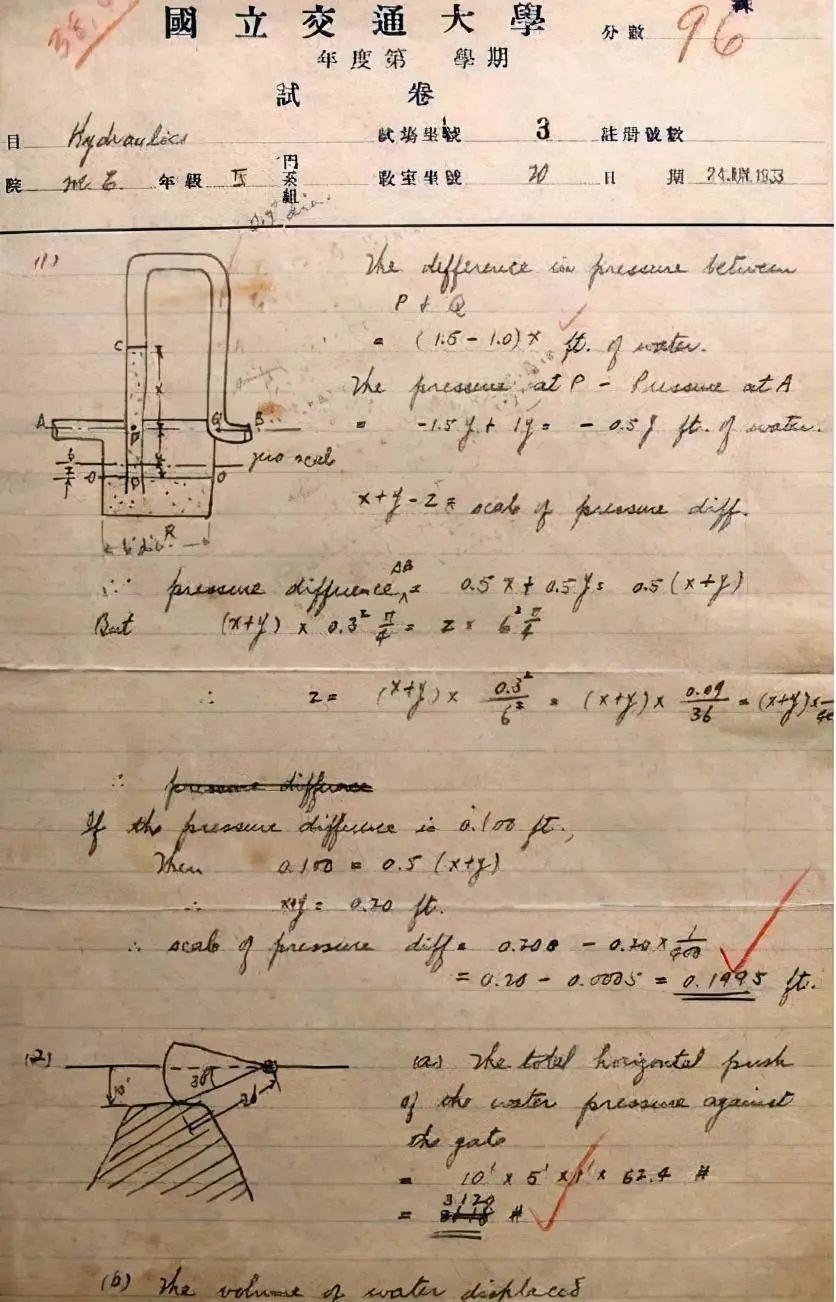 國立交通大學
分數 96
年度第 學期
試卷
目 Hydraulics 試場坐號 3 註冊號數
院 M.E. 年級 IV 組 教室坐號 20 日期 24 JUN 1933
(1)
The difference in pressure between
P & Q
= (1.5 - 1.0) x ft. of water.
The pressure at P - Pressure at A
= -1.5 y + 1y = - 0.5 y ft. of water.
C
x
A
B
P
y
zero scale
z
O
O
R
6" dia.
x+y-z = scale of pressure diff.
∴ pressure difference AB = 0.5 x + 0.5 y = 0.5 (x+y)
But (x+y) x 0.3² π/4 = z x 6² π/4
∴ z = (x+y) x 0.3²/6² = (x+y) x 0.09/36 = (x+y) x
∴ pressure difference
If the pressure difference is 0.100 ft.,
Then 0.100 = 0.5 (x+y)
∴ x+y = 0.20 ft.
∴ scale of pressure diff = 0.200 - 0.20 x 1/400
= 0.20 - 0.0005 = 0.1995 ft.
(2)
10'
30°
(a) The total horizontal push
of the water pressure against
the gate
= 10' x 5' x 1' x 62.4 #
= 3120 #
(b) The volume of water displaced